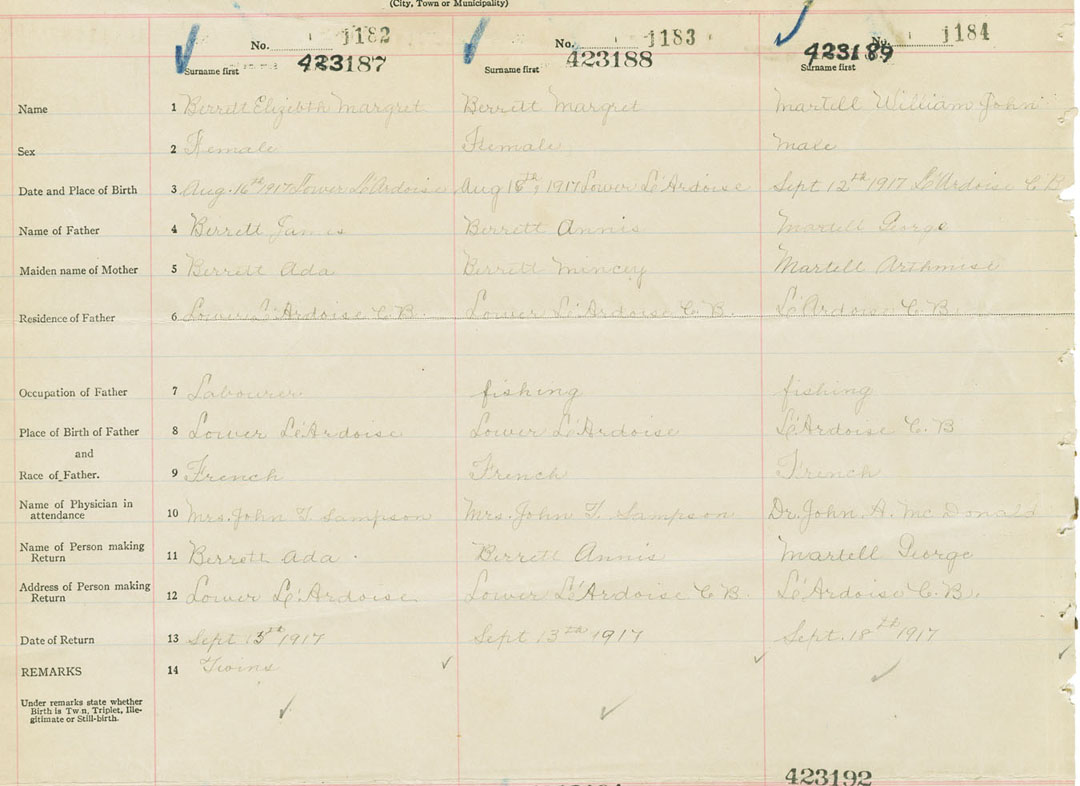 (City, Town or Municipality)
No. 1182 No. 1183 No. 1184
423187 423188 423189
Surname first Surname first Surname first
Name 1 Berrett Elizebth Margret Berrett Margret Martell William John
Sex 2 Female Female Male
Date and Place of Birth 3 Aug. 16th 1917 Lower L'Ardoise Aug 18th, 1917 Lower L'Ardoise Sept 12th 1917 L'Ardoise C B
Name of Father 4 Berrett James Berrett Annis Martell George
Maiden name of Mother 5 Berrett Ada Berrett Mincey Martell Arthmise
Residence of Father 6 Lower L'Ardoise C. B. Lower L'Ardoise C. B. L'Ardoise C. B.
Occupation of Father 7 Labourer fishing fishing
Place of Birth of Father 8 Lower L'Ardoise Lower L'Ardoise L'Ardoise C. B
and
Race of Father. 9 French French French
Name of Physician in
attendance 10 Mrs. John T. Sampson Mrs. John T. Sampson Dr. John. A. Mc Donald
Name of Person making
Return 11 Berrett Ada Berrett Annis Martell George
Address of Person making
Return 12 Lower L'Ardoise Lower L'Ardoise C B. L'Ardoise C. B.
Date of Return 13 Sept 13th 1917 Sept 13th 1917 Sept. 18th 1917
REMARKS 14 Twins
Under remarks state whether
Birth is Twin, Triplet, Ille-
gitimate or Still-birth.
423192